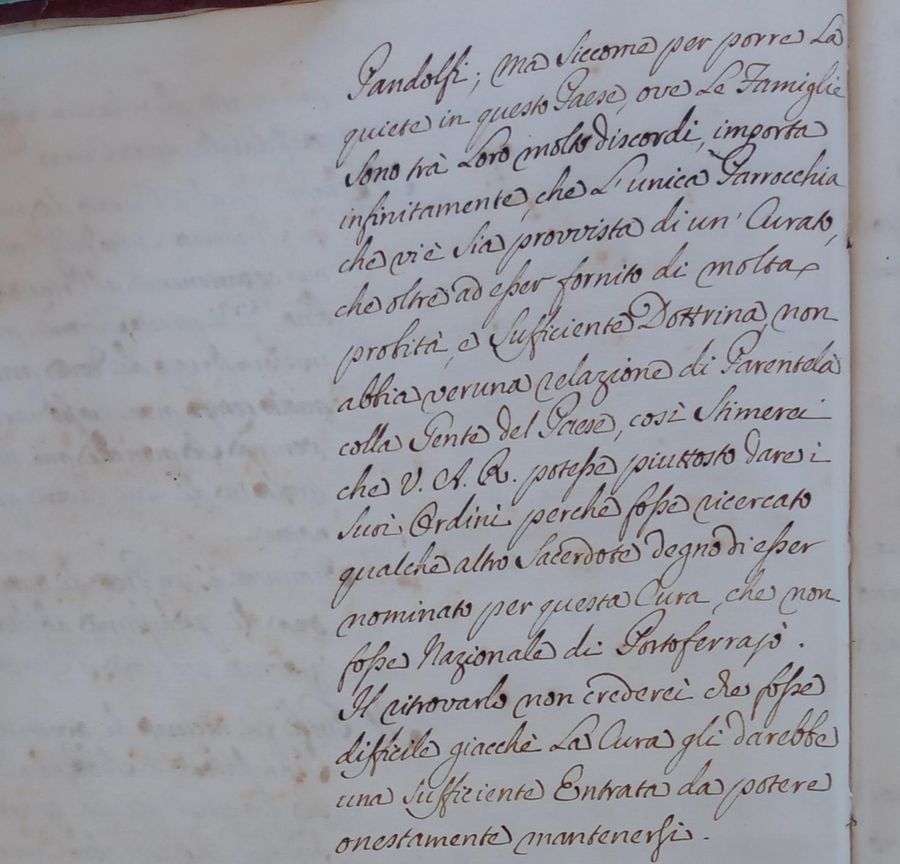 Pandolfi; ma siccome per porre la
quiete in questo Paese, ove le Famiglie
sono trà loro molto discordi, importa
infinitamente, che l'unica Parrocchia
che vi è sia provvista di un' Curato,
che oltre ad esser fornito di molta
probità, e sufficiente Dottrina, non
abbia veruna relazione di Parentela
colla Gente del Paese, così stimerei
che V. A. R. potesse piuttosto dare i
suoi Ordini perche fosse ricercato
qualche altro Sacerdote degno di esser
nominato per questa Cura, che non
fosse Nazionale di Portoferrajo.
Il ritrovarlo non crederei che fosse
difficile giacchè la Cura gli darebbe
una sufficiente Entrata da potere
onestamente mantenersi.